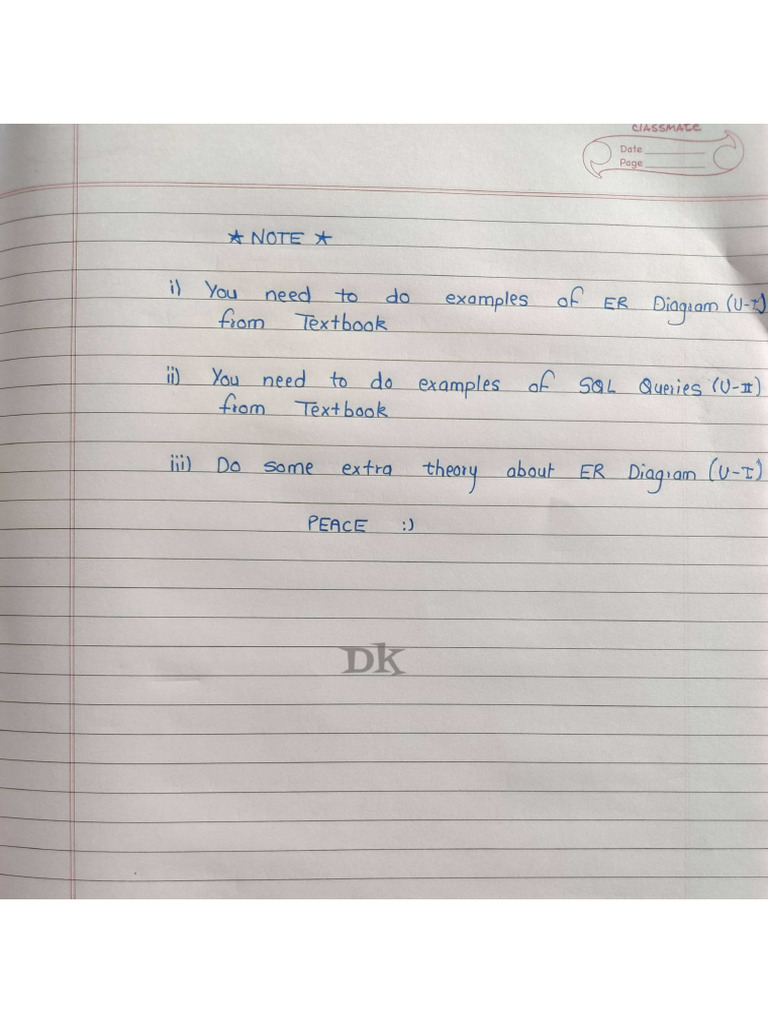 classmate
Date
Page
★ NOTE ★
i) You need to do examples of ER Diagram (U-I)
from Textbook
ii) You need to do examples of SQL Queries (U-II)
from Textbook
iii) Do some extra theory about ER Diagram (U-I)
PEACE :)
DK